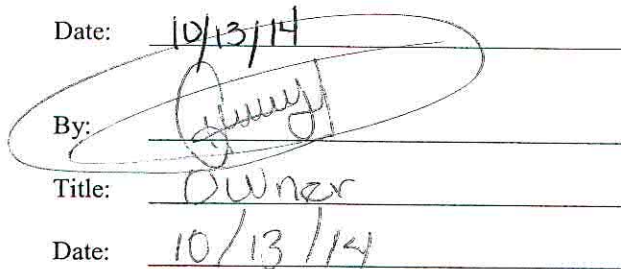 Date: 10/13/14
By:
Title: Owner
Date: 10/13/14